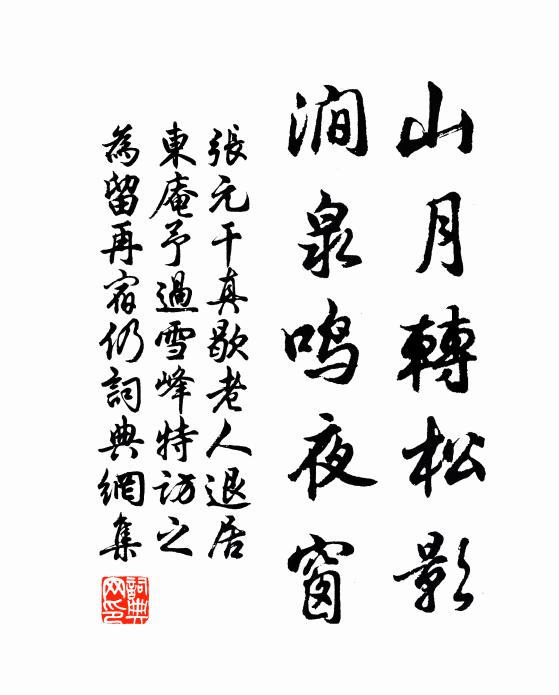 山月轉松影
澗泉鳴夜窗
張元干真歇老人退居
東庵予過雪峰特訪之
為留再宿仍詞典網集
詞典
网印